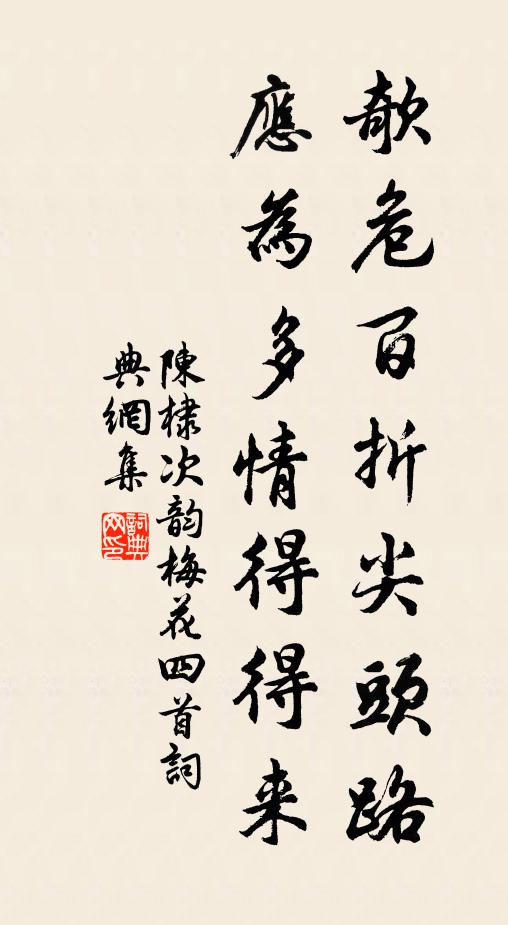 欹危百折尖頭路
應為多情得得来
陳棣次韵梅花四首詞
典網集
詞典
网印